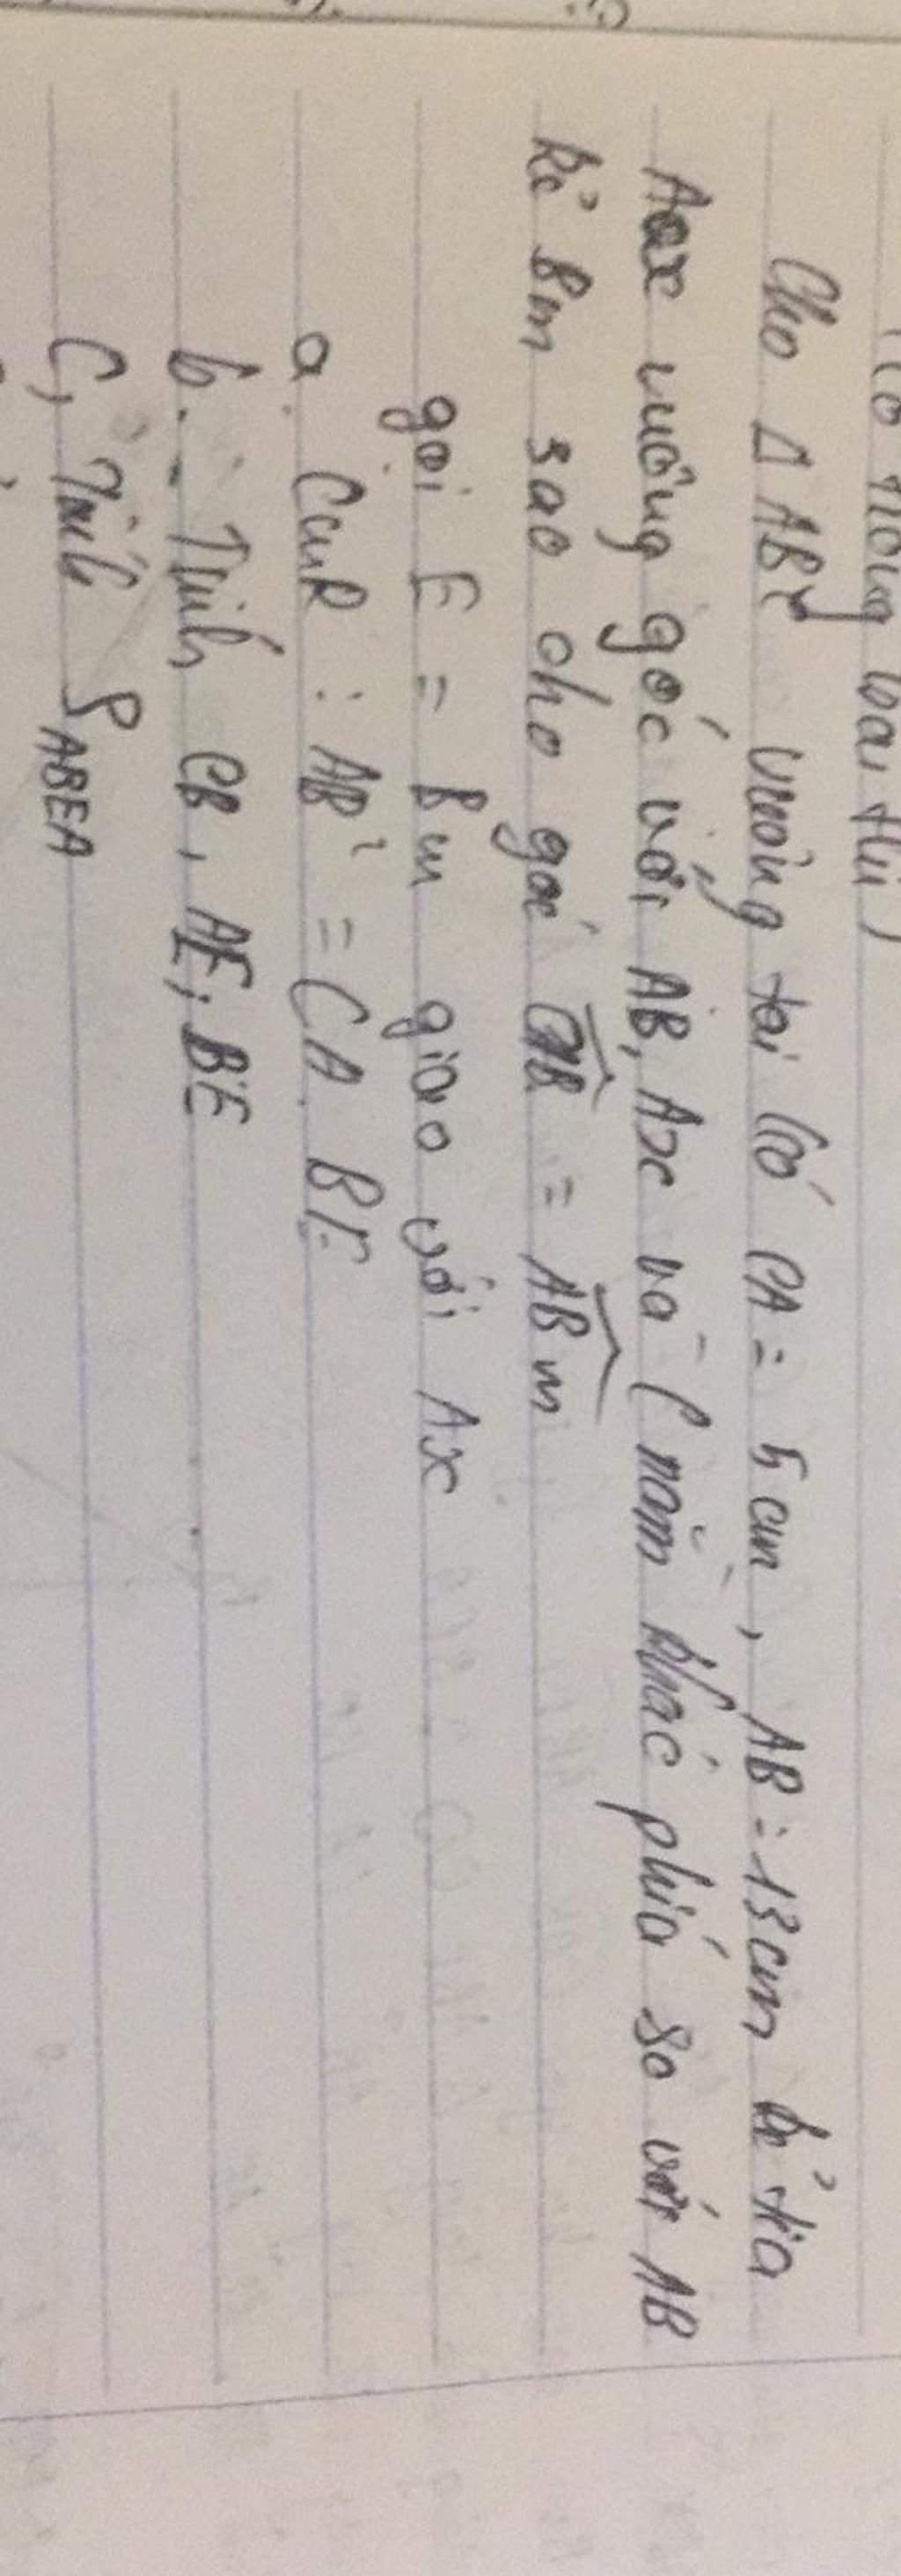 Cho Δ ABC vuông tại C có CA = 5 cm, AB = 13cm kẻ tia
Ax vuông góc với AB, Ax và C nằm khác phía so với AB
kẻ Bm sao cho góc CAB = ABm
gọi E = Bm giao với Ax
a. CmR : AB² = CA. BE
b. Tính CB, AE; BE
C, Tính S ABEA